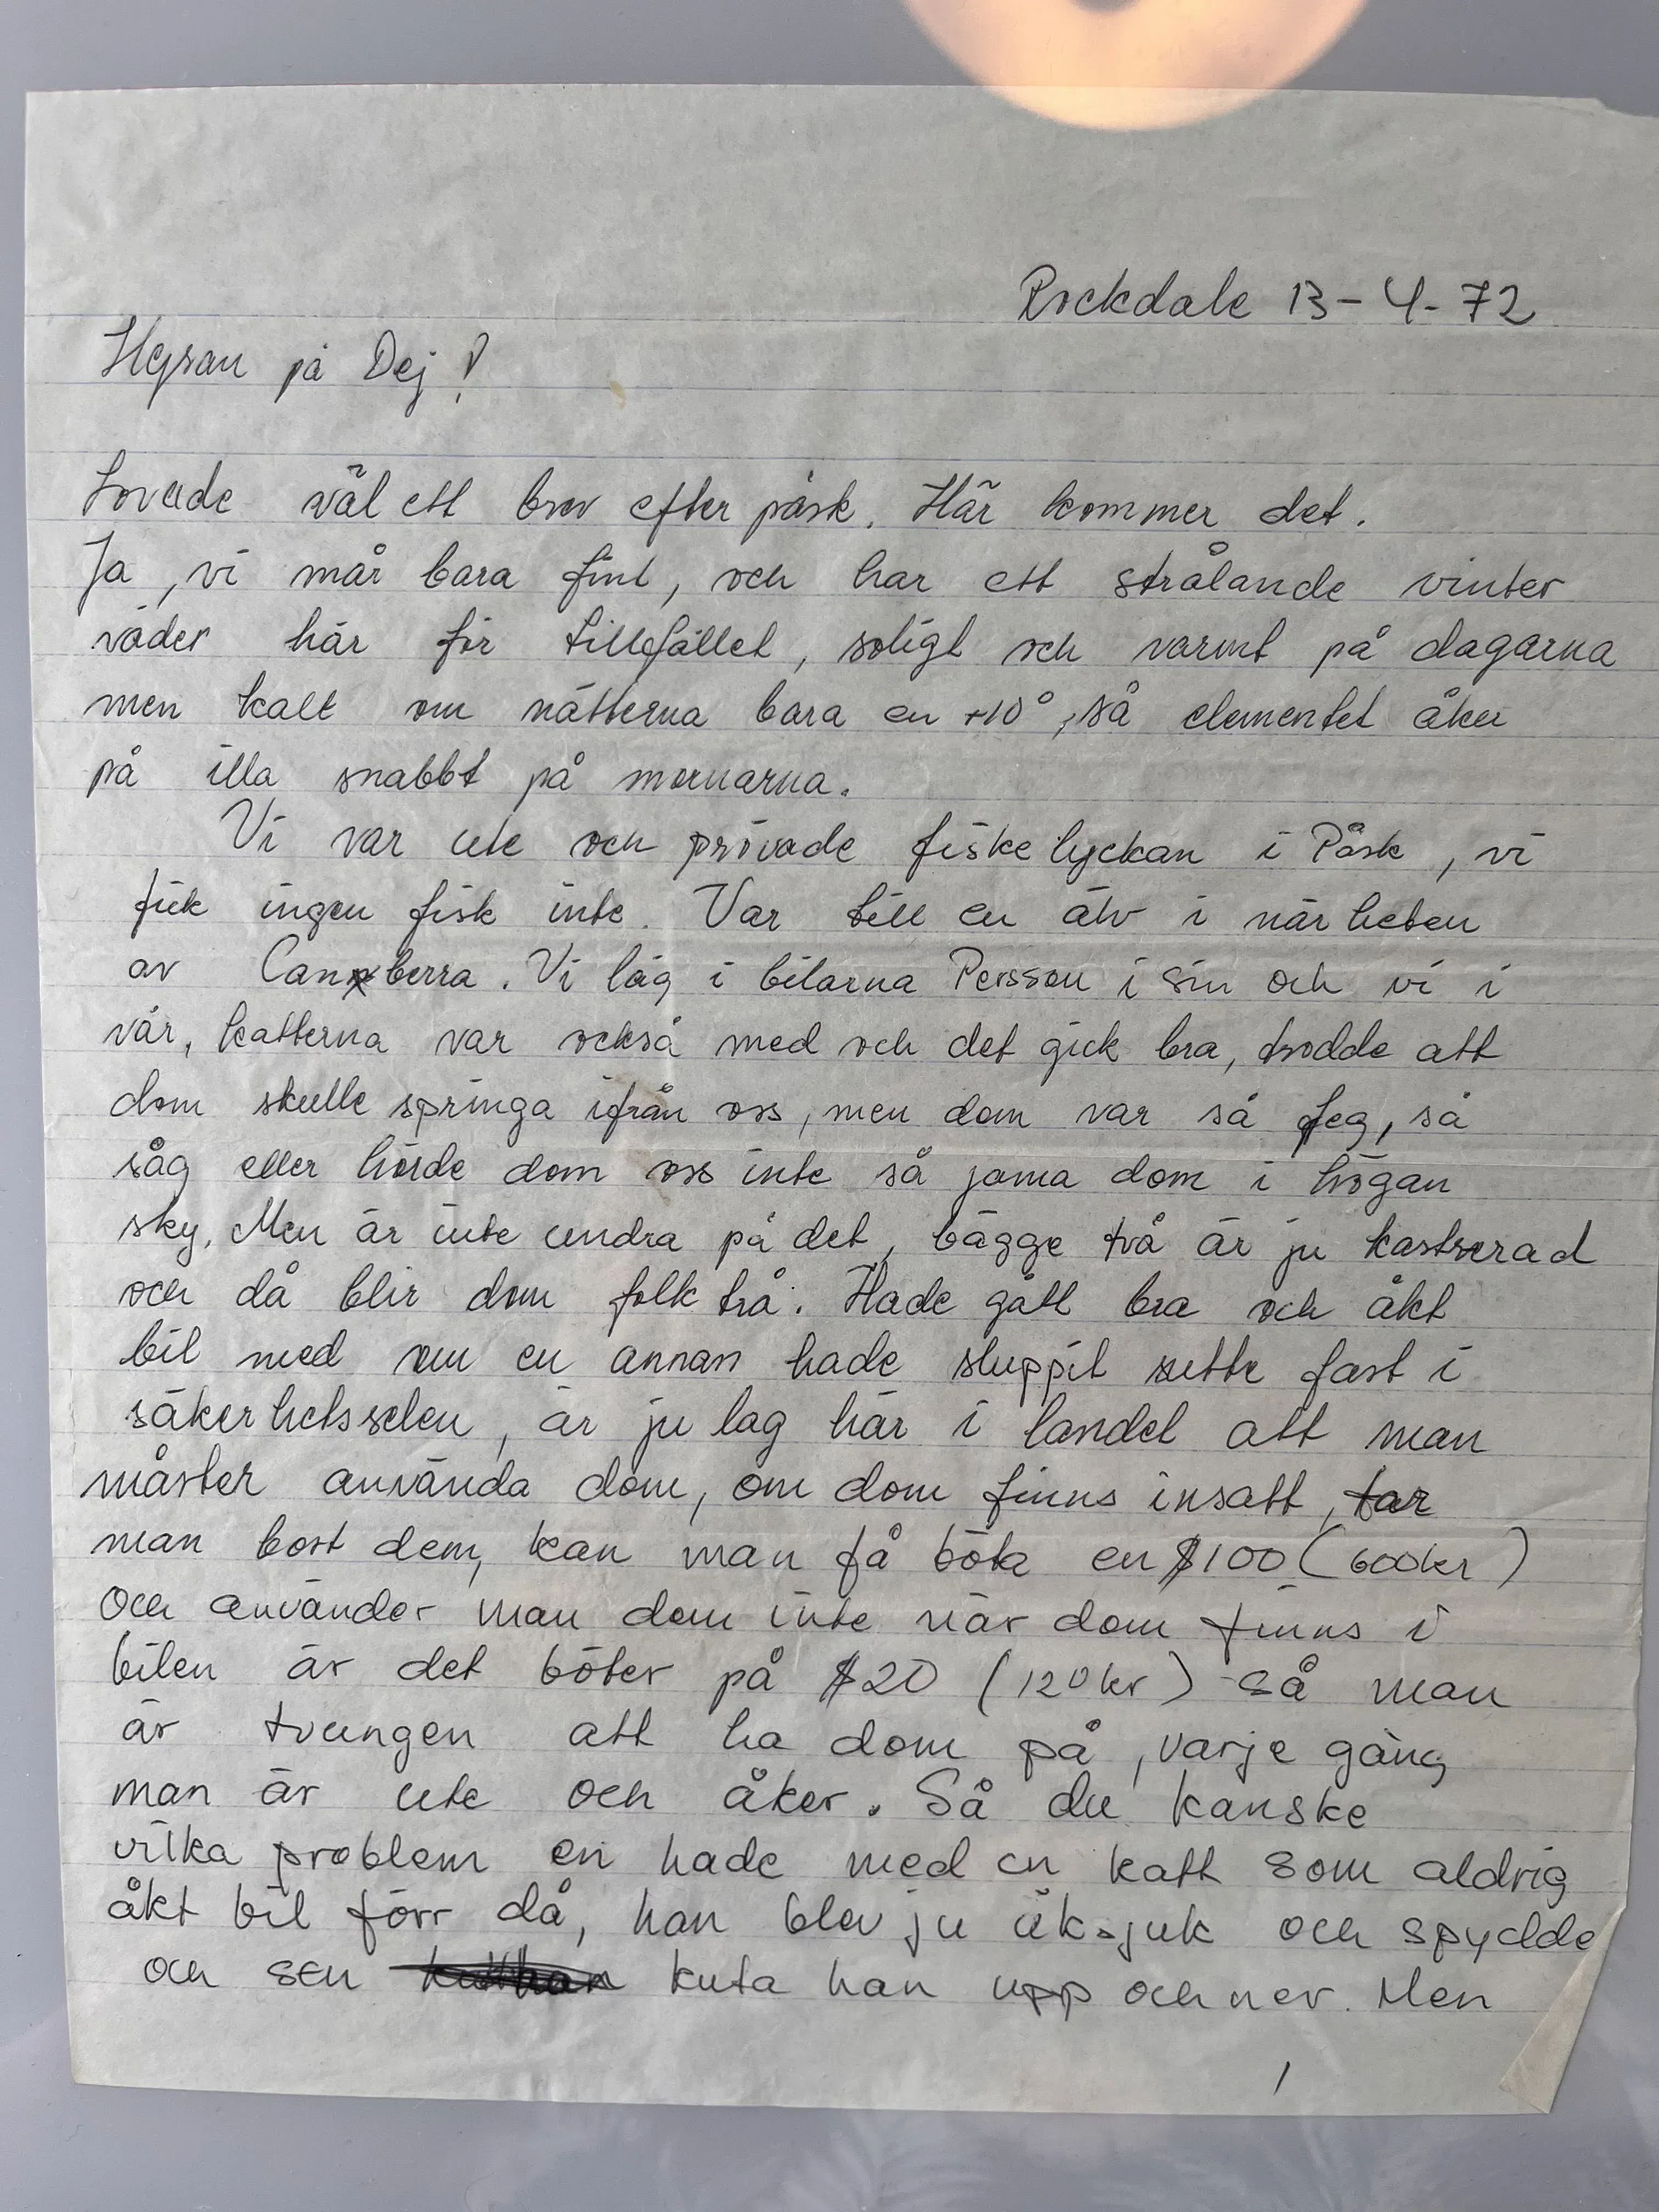 Rockdale 13-4-72
Hejsan på Dej!
Lovade väl ett brev efter påsk. Här kommer det.
Ja, vi mår bara fint, och har ett strålande vinter
väder här för tillfället, soligt och varmt på dagarna
men kallt om nätterna bara en +10°, så elementet åker
på illa snabbt på mornarna.
Vi var ute och prövade fiske lyckan i Påsk, vi
fick ingen fisk inte. Var till en älv i när heten
av Canberra. Vi låg i bilarna Persson i sin och vi i
vår, katterna var också med och det gick bra, trodde att
dom skulle springa ifrån oss, men dom var så feg, så
såg eller hörde dom oss inte så jama dom i högan
sky. Men är inte undra på det, bägge två är ju kastrerad
och då blir dom folk krä. Hade gått bra och åkt
bil med om en annan hade sluppit sutte fast i
säkerhetsselen, är ju lag här i landet att man
måster använda dom, om dom finns insatt, tar
man bort dem, kan man få böta en $100 (600kr)
Och använder man dom inte när dom finns i
bilen är det böter på $20 (120kr) så man
är tvungen att ha dom på, varje gång
man är ute och åker. Så du kanske
vilka problem en hade med en katt som aldrig
åkt bil förr då, han blev ju åksjuk och spydde
och sen kuta han upp och ner. Men
1